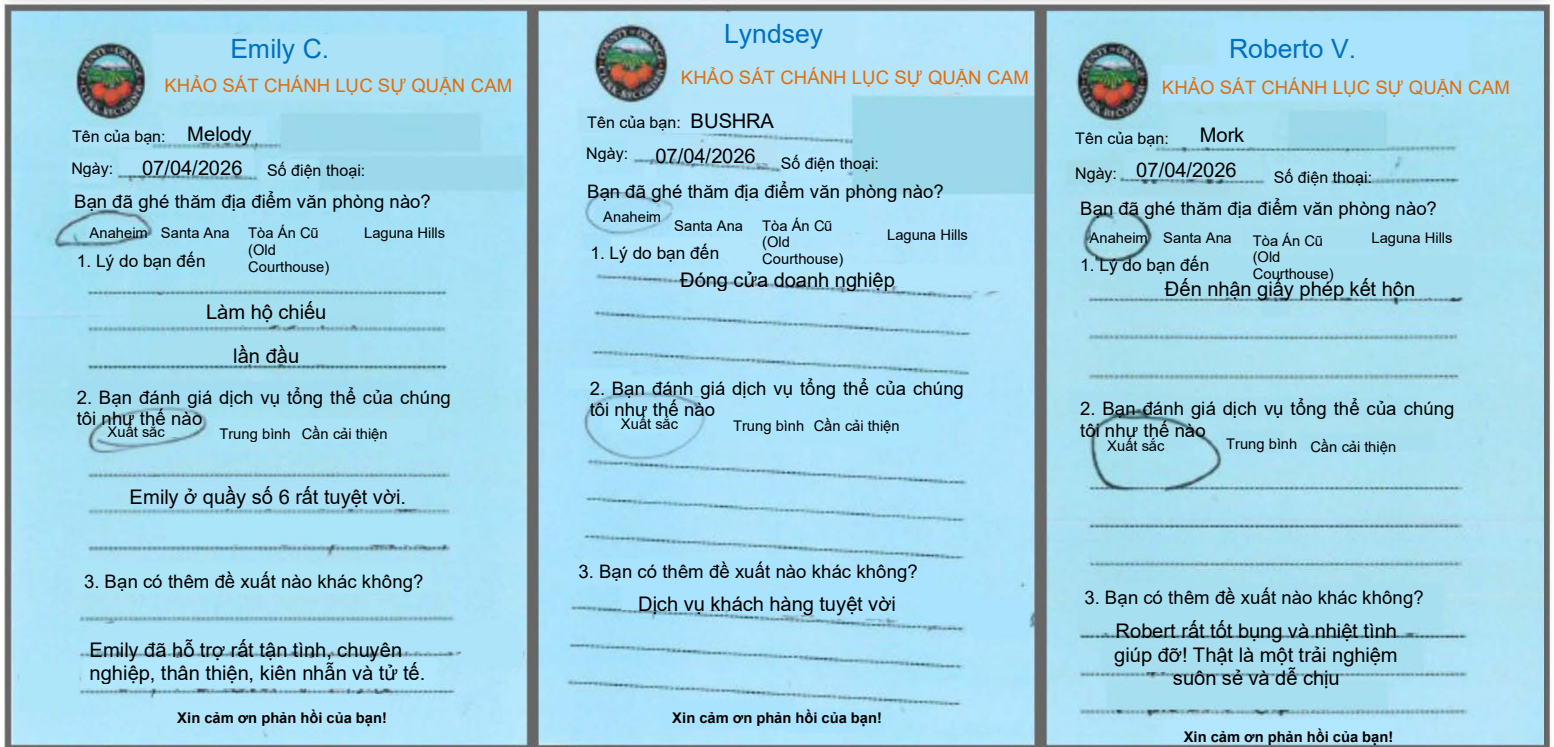 Emily C.
KHẢO SÁT CHÁNH LỤC SỰ QUẬN CAM
Tên của bạn: Melody
Ngày: 07/04/2026 Số điện thoại:
Bạn đã ghé thăm địa điểm văn phòng nào?
Anaheim Santa Ana Tòa Án Cũ Laguna Hills
(Old
Courthouse)
1. Lý do bạn đến
Làm hộ chiếu
lần đầu
2. Bạn đánh giá dịch vụ tổng thể của chúng
tôi như thế nào
Xuất sắc Trung bình Cần cải thiện
Emily ở quầy số 6 rất tuyệt vời.
3. Bạn có thêm đề xuất nào khác không?
Emily đã hỗ trợ rất tận tình, chuyên
nghiệp, thân thiện, kiên nhẫn và tử tế.
Xin cảm ơn phản hồi của bạn!
Lyndsey
KHẢO SÁT CHÁNH LỤC SỰ QUẬN CAM
Tên của bạn: BUSHRA
Ngày: 07/04/2026 Số điện thoại:
Bạn đã ghé thăm địa điểm văn phòng nào?
Anaheim Santa Ana Tòa Án Cũ Laguna Hills
(Old
Courthouse)
1. Lý do bạn đến
Đóng cửa doanh nghiệp
2. Bạn đánh giá dịch vụ tổng thể của chúng
tôi như thế nào
Xuất sắc Trung bình Cần cải thiện
3. Bạn có thêm đề xuất nào khác không?
Dịch vụ khách hàng tuyệt vời
Xin cảm ơn phản hồi của bạn!
Roberto V.
KHẢO SÁT CHÁNH LỤC SỰ QUẬN CAM
Tên của bạn: Mork
Ngày: 07/04/2026 Số điện thoại:
Bạn đã ghé thăm địa điểm văn phòng nào?
Anaheim Santa Ana Tòa Án Cũ Laguna Hills
(Old
Courthouse)
1. Lý do bạn đến
Đến nhận giấy phép kết hôn
2. Bạn đánh giá dịch vụ tổng thể của chúng
tôi như thế nào
Xuất sắc Trung bình Cần cải thiện
3. Bạn có thêm đề xuất nào khác không?
Robert rất tốt bụng và nhiệt tình
giúp đỡ! Thật là một trải nghiệm
suôn sẻ và dễ chịu
Xin cảm ơn phản hồi của bạn!